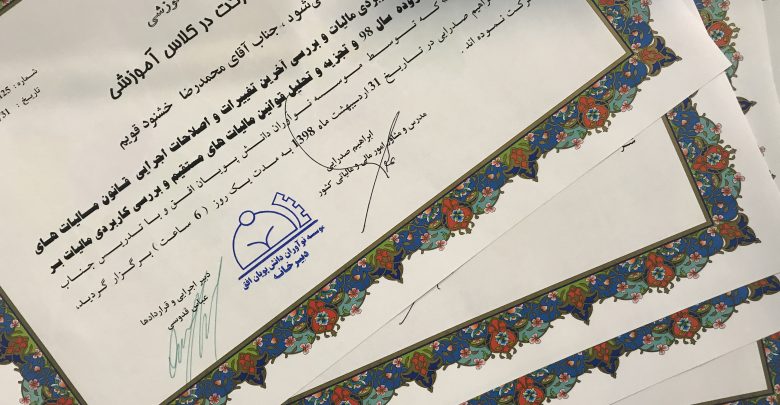 شرکت در کلاس آموزشی
شماره: 425
تاریخ: 31/
شود، جناب آقای محمدرضا خشنود قویم
کاربردی مالیات و بررسی آخرین تغییرات و اصلاحات اجرایی قانون مالیات های
سال 98 و تجزیه و تحلیل قوانین مالیات های مستقیم و بررسی کاربردی مالیات بر
که توسط موسسه نوآوران دانش پویان افق و با تدریس جناب
ابراهیم صدرایی در تاریخ 31 اردیبهشت ماه 1398 به مدت یک روز (6 ساعت) برگزار گردید،
شرکت نموده اند.
ابراهیم صدرایی
مدرس و مشاور امور مالی و مالیاتی کشور
موسسه نوآوران دانش پویان افق
دبیرخانه
دبیر اجرایی و قراردادها
عباس قدوسی